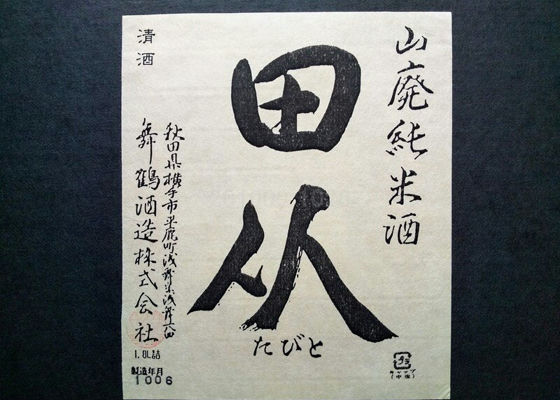 山廃純米酒
田从
たびと
清酒
秋田県横手市平鹿町浅舞字浅舞
舞鶴酒造株式会社
1.8L詰
製造年月
1006
プラ
キャップ
(中栓)